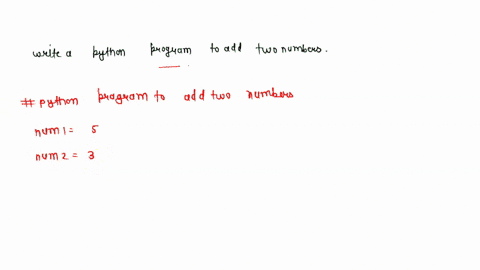 write a python program to add two numbers.
# python program to add two numbers
num1 = 5
num2 = 3